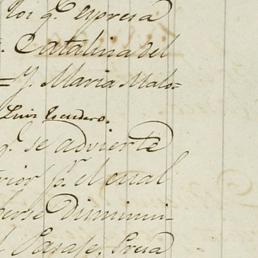 los q. Expresa
Catalina del
=Y. Maria Malo-
Luis Escudero.
q. Se advierte
rior pr. el cual
Disminui-
l Pasaje. Presa